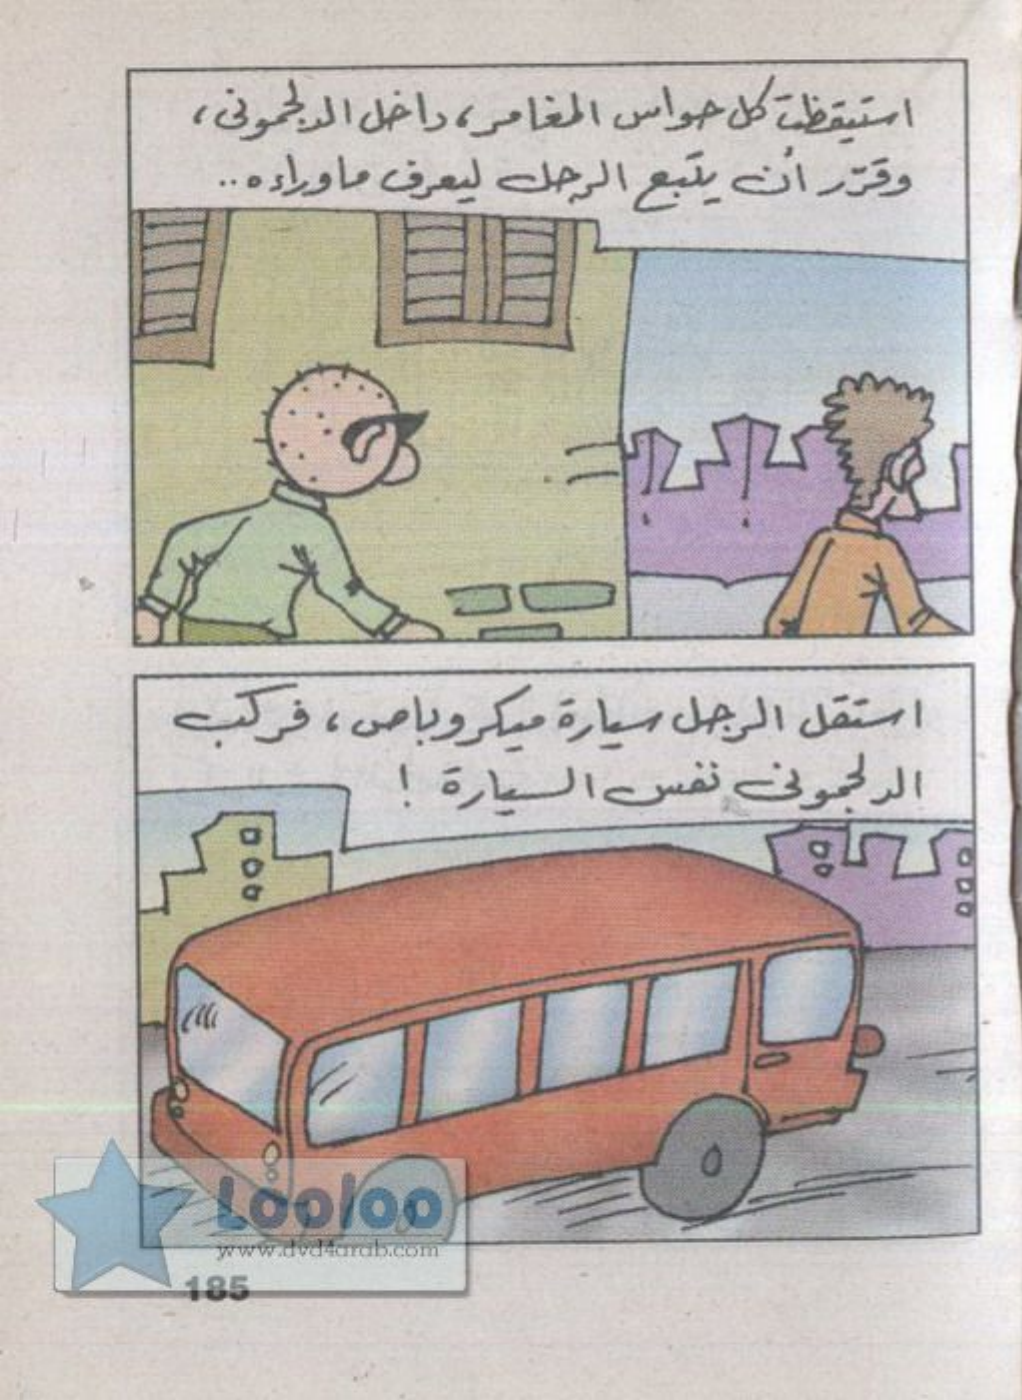 استيقظت كل حواس المغامر، داخل الدلجمونى،
وقرّر أن يتبع الرجل ليعرف ما وراءه..
استقل الرجل سيارة ميكروباص، فركب
الدلجمونى نفس السيارة !
Looloo
www.dvd4arab.com
185